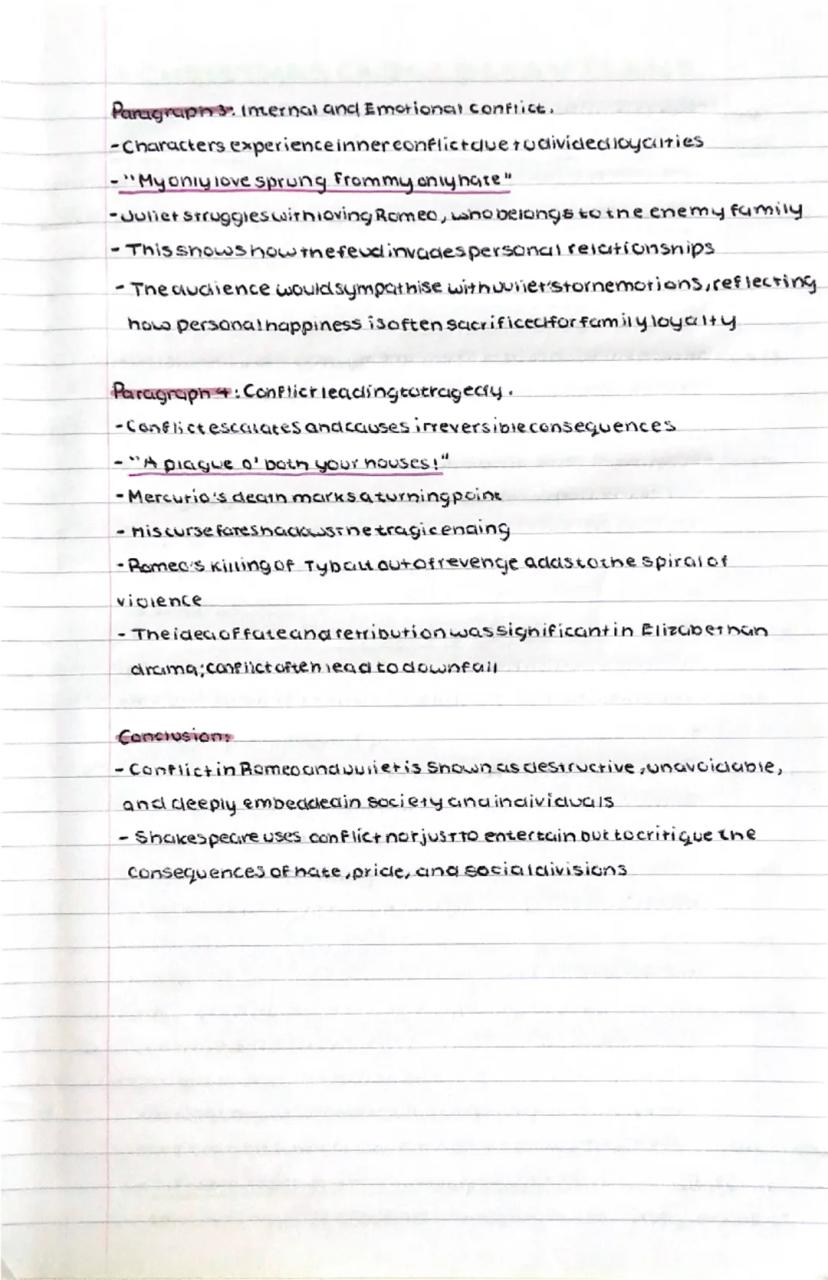 Paragraph 3: Internal and Emotional conflict.
- Characters experience inner conflict due to divided loyalties
- "My only love sprung from my only hate"
- Juliet struggles with loving Romeo, who belongs to the enemy family
- This shows how the feud invades personal relationships
- The audience would sympathise with Juliet's torn emotions, reflecting
how personal happiness is often sacrificed for family loyalty
Paragraph 4: Conflict leading to tragedy.
- Conflict escalates and causes irreversible consequences
- "A plague o' both your houses!"
- Mercutio's death marks a turning point
- his curse foreshadows the tragic ending
- Romeo's killing of Tybalt out of revenge adds to the spiral of
violence
- The idea of fate and retribution was significant in Elizabethan
drama; conflict often lead to downfall
Conclusion:
- Conflict in Romeo and Juliet is shown as destructive, unavoidable,
and deeply embedded in society and individuals
- Shakespeare uses conflict not just to entertain but to critique the
consequences of hate, pride, and social divisions